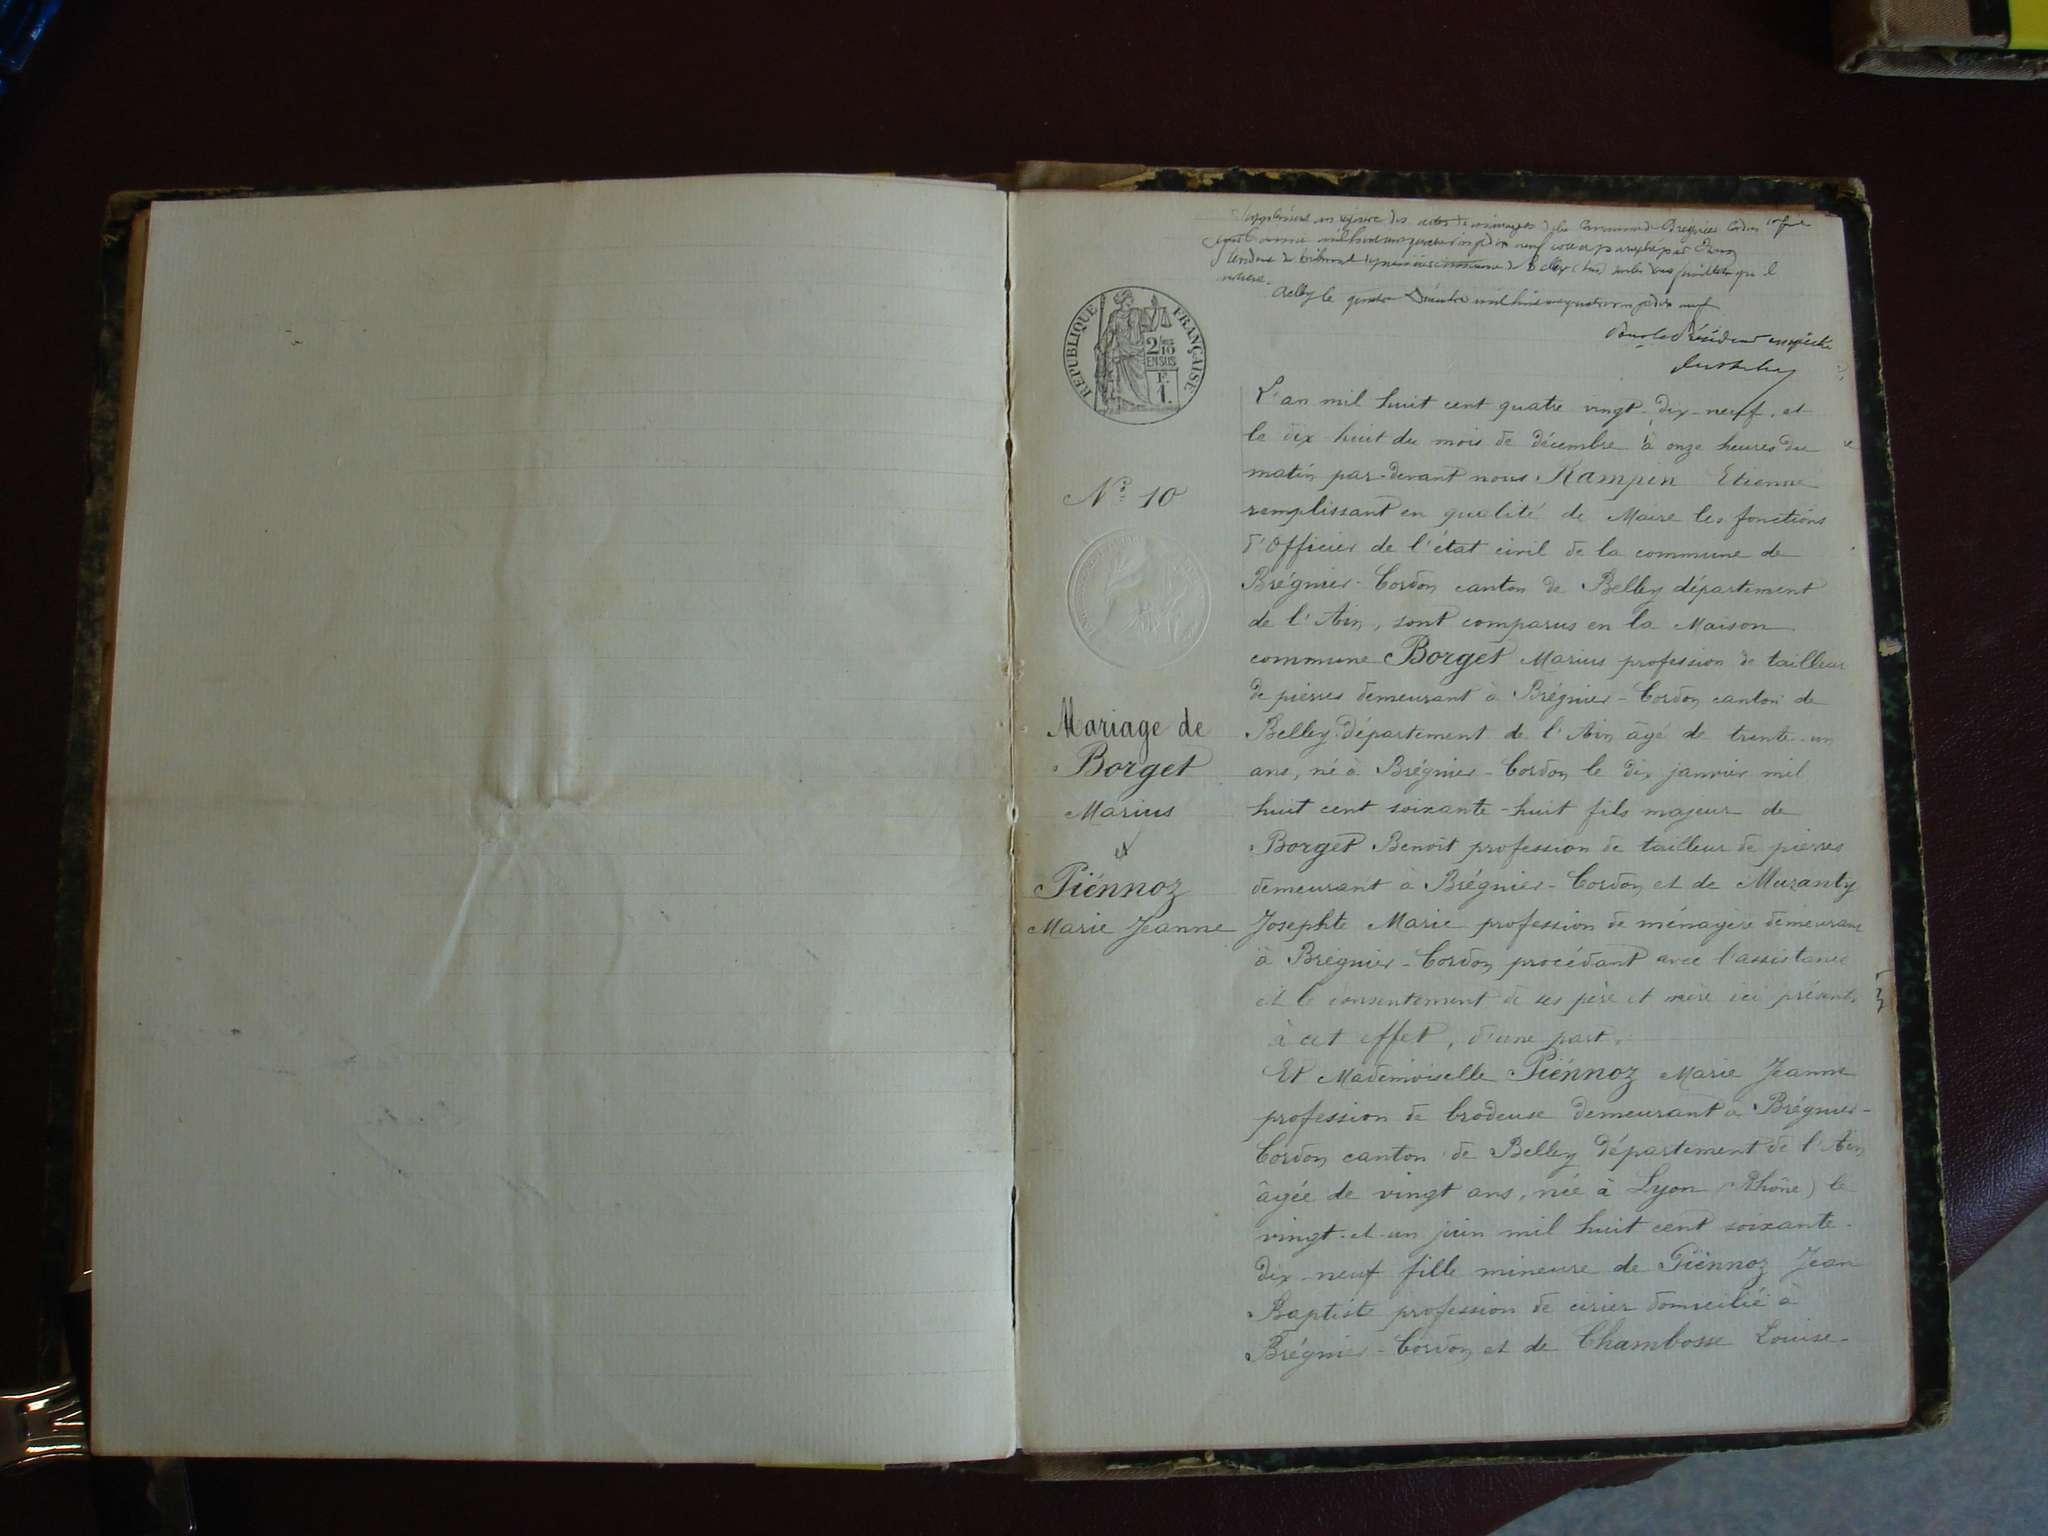 Belley le quinze Décembre mil huit cent quatre vingt dix neuf
Pour le Président empêché
RÉPUBLIQUE FRANÇAISE
2/10
EN SUS
F.
1.
L'an mil huit cent quatre vingt-dix-neuf, et
le dix huit du mois de décembre à onze heures du
matin par-devant nous Rampin Etienne
remplissant en qualité de Maire les fonctions
d'Officier de l'état civil de la commune de
Brégnier-Cordon canton de Belley département
de l'Ain, sont comparus en la Maison
commune Borget Marius profession de tailleur
de pierres demeurant à Brégnier-Cordon canton de
Belley département de l'Ain âgé de trente-un
ans, né à Brégnier-Cordon le dix janvier mil
huit cent soixante-huit fils majeur de
Borget Benoit profession de tailleur de pierres
demeurant à Brégnier-Cordon et de Muzanty
Josephte Marie profession de ménagère demeurant
à Brégnier-Cordon procédant avec l'assistance
et le consentement de ses père et mère ici présents
à cet effet, d'une part,
Et Mademoiselle Piénnoz Marie Jeanne
profession de brodeuse demeurant à Brégnier-
Cordon canton de Belley département de l'Ain
âgée de vingt ans, née à Lyon (Rhône) le
vingt-et-un juin mil huit cent soixante-
dix-neuf fille mineure de Piénnoz Jean
Baptiste profession de cirier domicilié à
Brégnier-Cordon et de Chambosse Louise-
N° 10
Mariage de
Borget
Marius
et
Piénnoz
Marie Jeanne